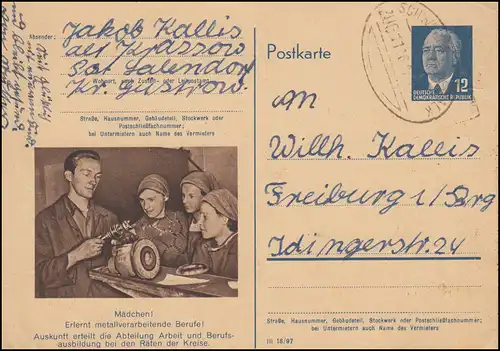 Absender:
Jakob Kallis
Krassow
Wohnort, auch Zustell- oder Leitpostamt
Kr. Güstrow
Straße, Hausnummer, Gebäudeteil, Stockwerk oder
Postschließfachnummer;
bei Untermietern auch Name des Vermieters
Mädchen!
Erlernt metallverarbeitende Berufe!
Auskunft erteilt die Abteilung Arbeit und Berufs-
ausbildung bei den Räten der Kreise.
Postkarte
DEUTSCHE
DEMOKRATISCHE REPUBLIK
12
An
Willh. Kallis
Freiburg i/Brg
Idingerstr. 24
Straße, Hausnummer, Gebäudeteil, Stockwerk oder Postschließfachnummer;
bei Untermietern auch Name des Vermieters
III 18/97